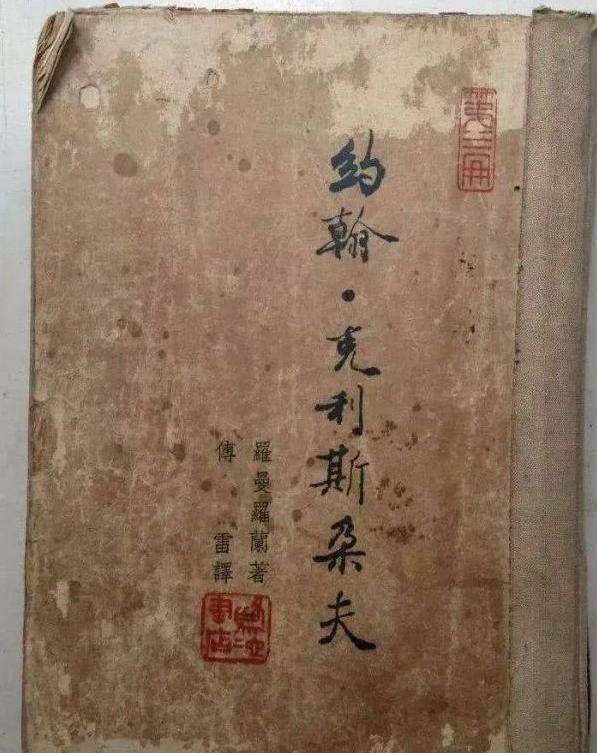 第三冊
約翰·克利斯朵夫
羅曼羅蘭著
傅雷譯
駱駝
書店